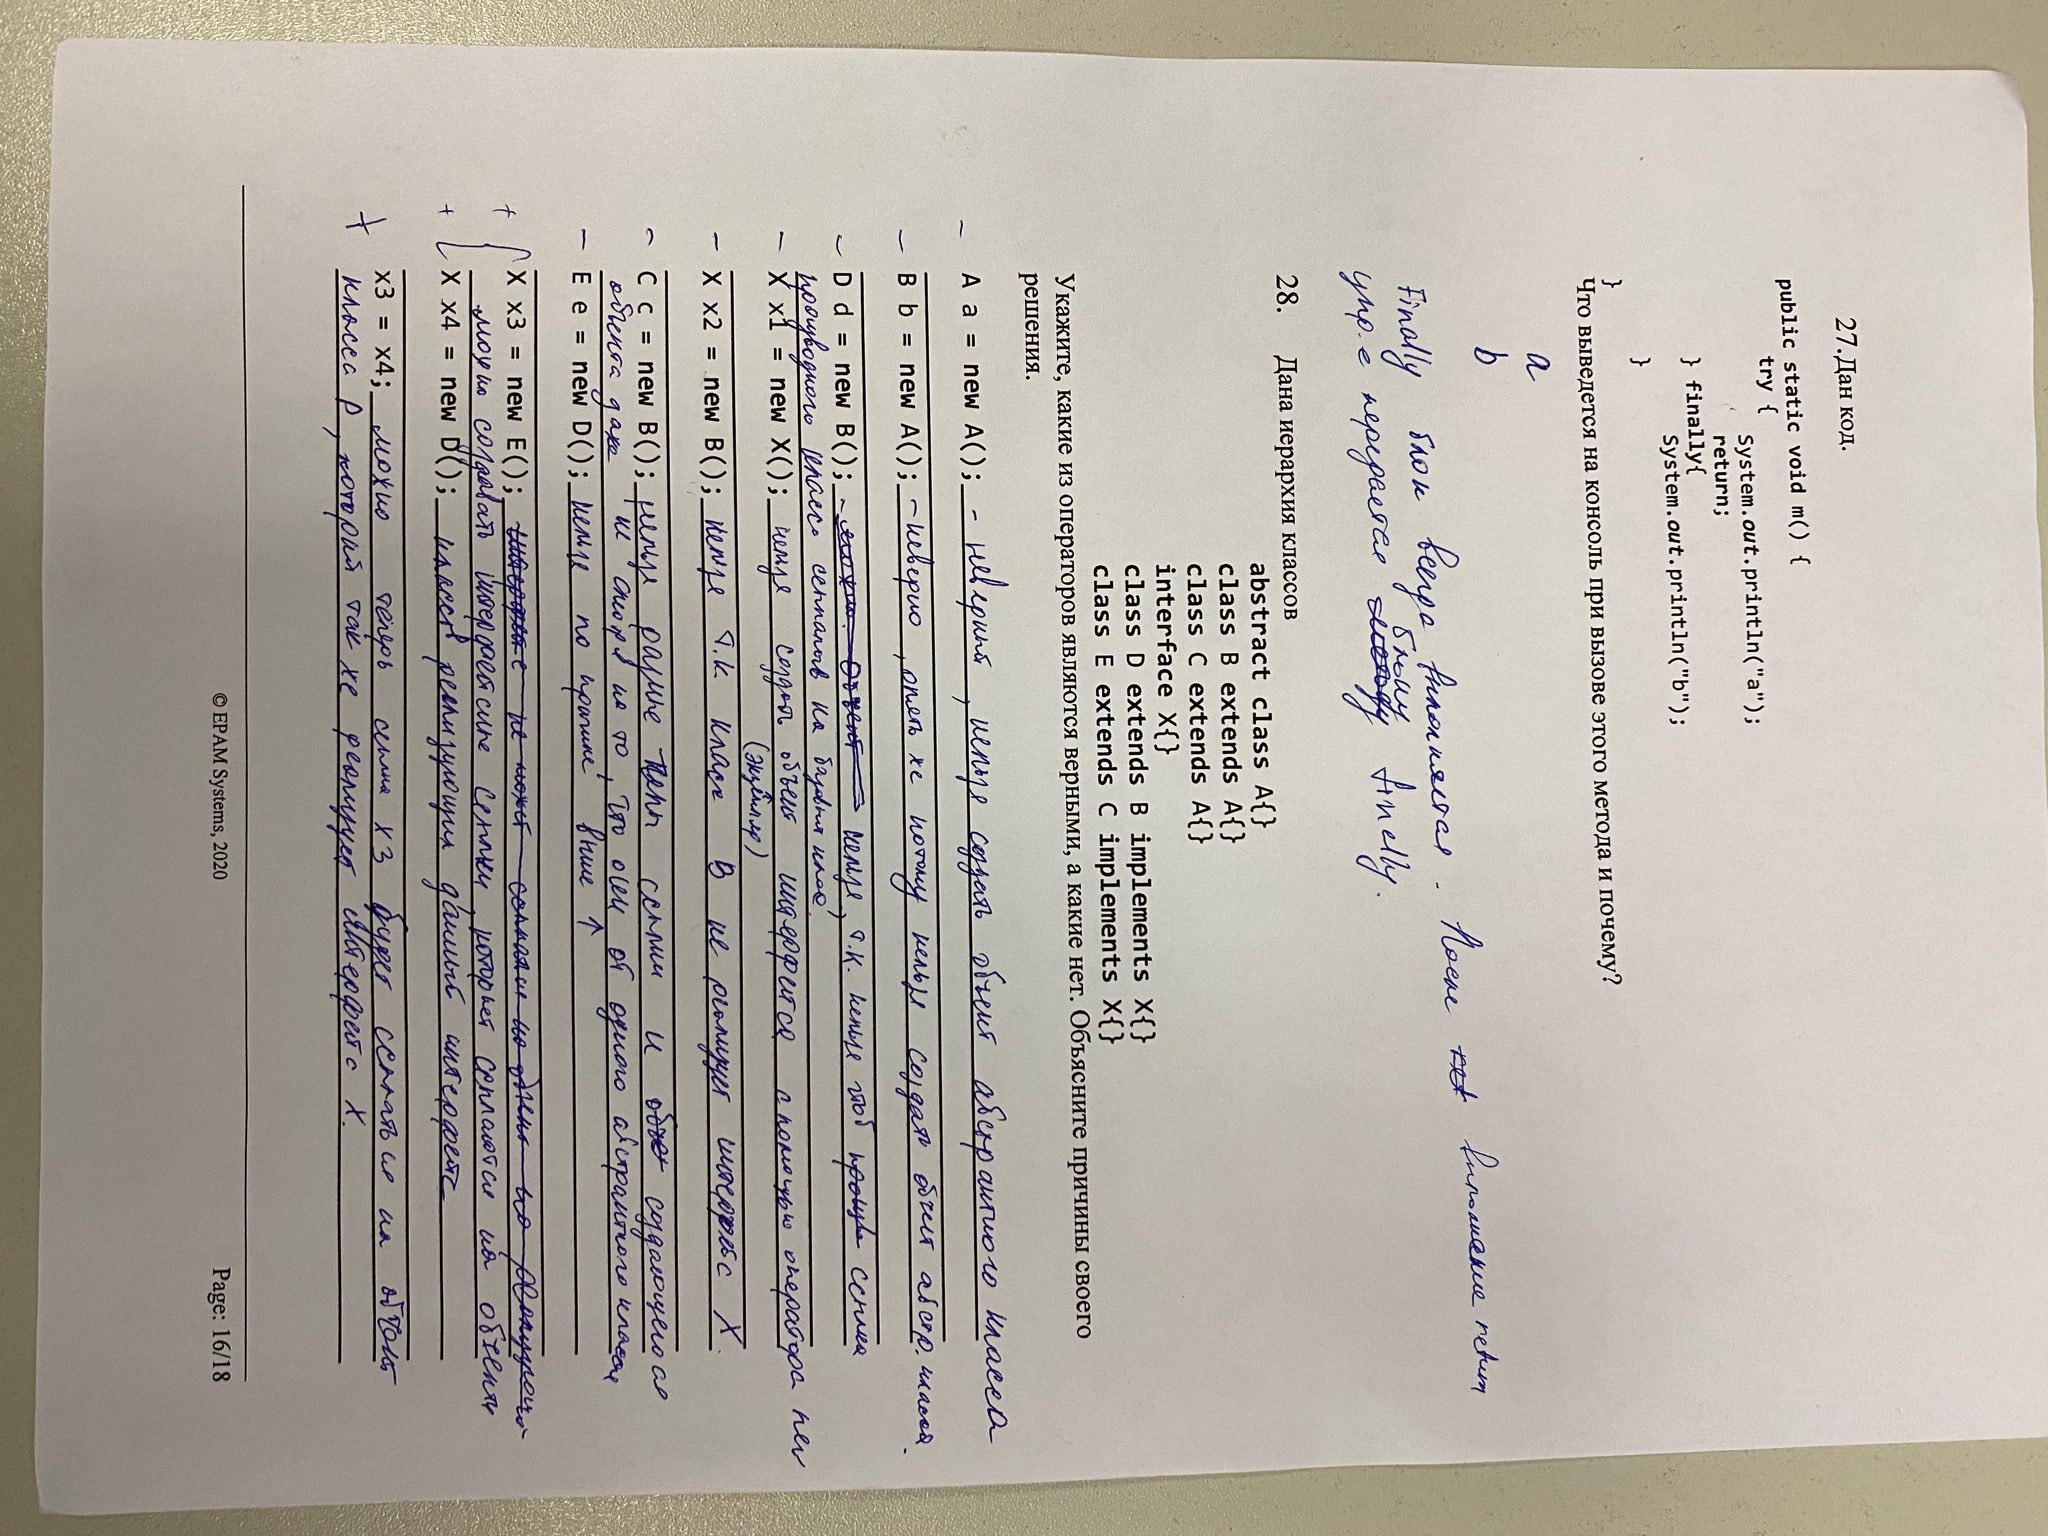 27.Дан код.
public static void m() {
try {
System.out.println("a");
return;
} finally{
System.out.println("b");
}
}
Что выведется на консоль при вызове этого метода и почему?
a
b
Finally блок всегда выполняется. После выполнения return
упр.е передается блоку finally.
28. Дана иерархия классов
abstract class A{}
class B extends A{}
class C extends A{}
interface X{}
class D extends B implements X{}
class E extends C implements X{}
Укажите, какие из операторов являются верными, а какие нет. Объясните причины своего
решения.
- A a = new A(); - неверный, нельзя создать объект абстрактного класса
- B b = new A(); - неверно, опять же потому нельзя создать объект абстр. класса.
- D d = new B(); нельзя, т.к. нельзя чтоб ссылка
производного класса ссылалась на базовый класс.
- X x1 = new X(); нельзя создать объект интерфейса с помощью оператора new
(экземпляр)
- X x2 = new B(); нельзя т.к. класс B не реализует интерфейс X.
- C c = new B(); нельзя разные типы ссылки и создающегося
объекта даже не смотря на то, что они от одного абстрактного класса
- E e = new D(); нельзя по причине выше ↑
+ X x3 = new E();
можно создавать интерфейсные ссылки, которые ссылаются на объекты
+ X x4 = new D(); классов реализующих данный интерфейс
x3 = x4; можно теперь ссылка x3 будет ссылаться на объект
+ класса D, который так же реализует интерфейс X.
© EPAM Systems, 2020
Page: 16/18